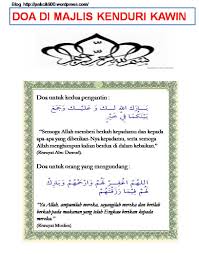 Blog http://pakcik600.wordpress.com/
DOA DI MAJLIS KENDURI KAWIN
Doa untuk kedua pengantin :
بَارَكَ اللهُ لَكَ وَ عَلَيْكَ وَ جَمَعَ
بَيْنَكُمَا فِي خَيْرٍ
"Semoga Allah memberi berkah kepadamu dan kepada
apa-apa yang diberikan-Nya kepadamu, serta semoga
Allah menghimpun kalian berdua di dalam kebaikan."
(Riwayat Abu Dawud).
Doa untuk orang yang mengundang :
اَللَّهُمَّ اغْفِرْ لَهُمْ وَارْحَمْهُمْ وَبَارِكْ
لَهُمْ فِيْمَا رَزَقْتَهُمْ
"Ya Allah, ampunilah mereka, sayangilah mereka dan berilah
berkah pada makanan yang telah Engkau berikan kepada
mereka."
(Riwayat Muslim)